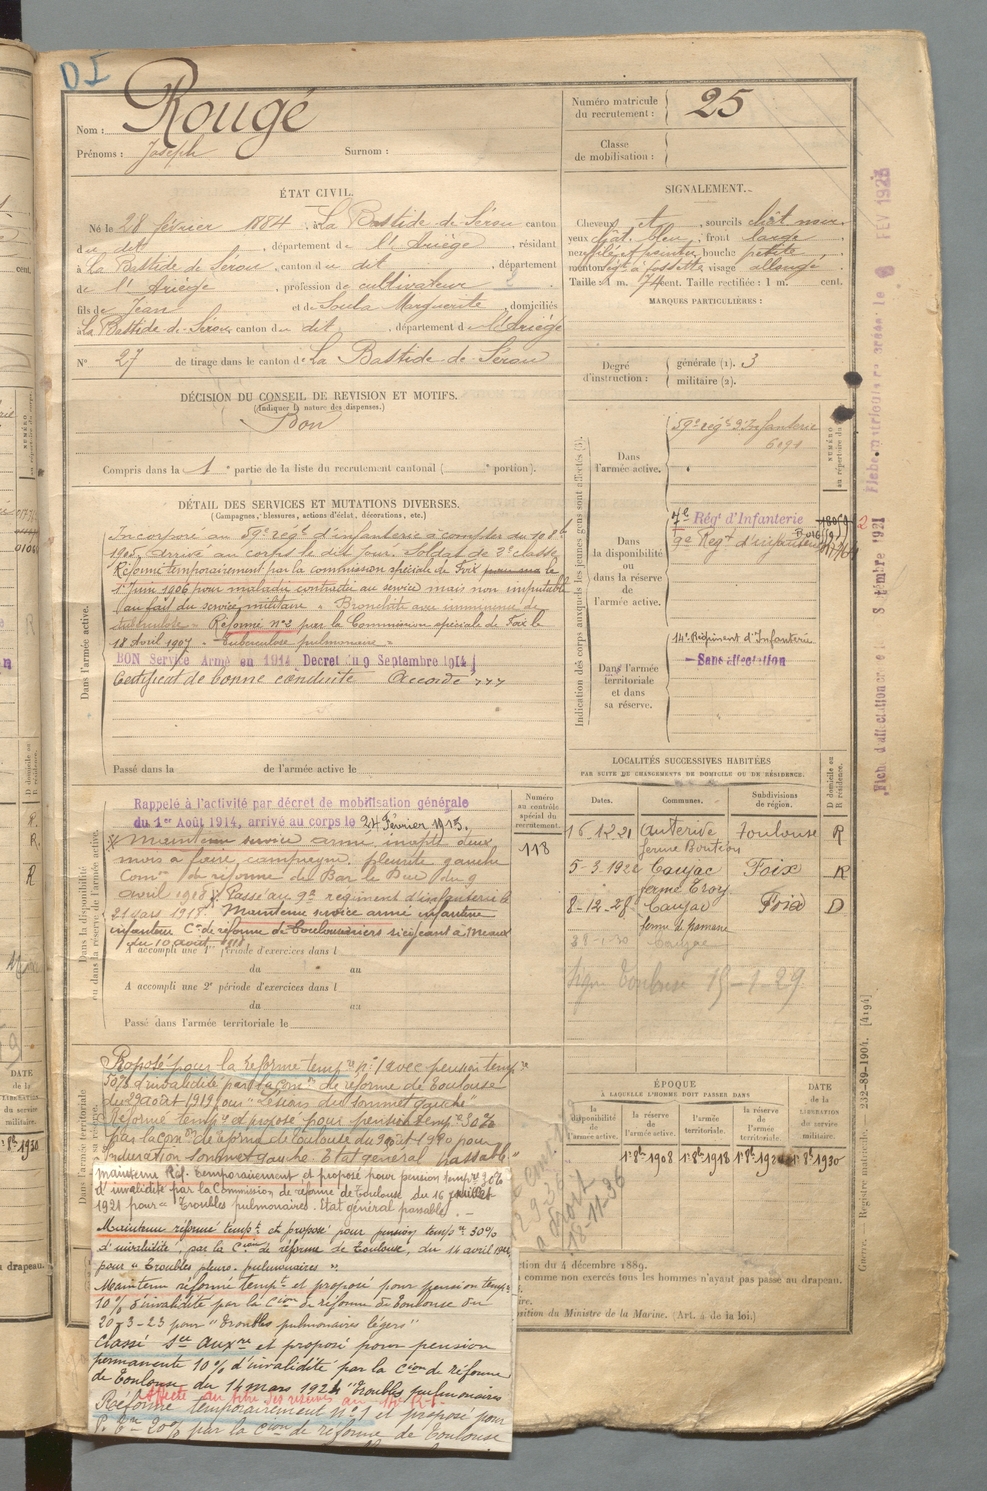 DI
Nom : Rougé
Prénoms : Joseph Surnom :
Numéro matricule du recrutement : 25
Classe de mobilisation :
ÉTAT CIVIL.
Né le 28 février 1884, à La Bastide de Sérou canton
du dit, département de l'Ariège, résidant
à La Bastide de Sérou, canton du dit, département
de l'Ariège, profession de cultivateur
fils de Jean et de Soula Marguerite, domiciliés
à La Bastide-de-Sérou, canton du dit, département de l'Ariège
N° 27 de tirage dans le canton de La Bastide-de-Sérou
SIGNALEMENT.
Cheveux et sourcils chât noir,
yeux chât. bleu, front large
nez effilé et pointu, bouche petite
menton à fossette, visage allongé
Taille : 1 m. 74 cent. Taille rectifiée : 1 m. cent.
MARQUES PARTICULIÈRES :
Degré d'instruction : générale (1). 3
militaire (2).
DÉCISION DU CONSEIL DE REVISION ET MOTIFS.
(Indiquer la nature des dispenses.)
Bon
Compris dans la 1e partie de la liste du recrutement cantonal ( e portion).
DÉTAIL DES SERVICES ET MUTATIONS DIVERSES.
(Campagnes, blessures, actions d'éclat, décorations, etc.)
Dans l'armée active.
Incorporé au 59e régt d'infanterie à compter du 10 8bre
1905, Arrivé au corps le dit jour. Soldat de 2e classe
Réformé temporairement par la commission spéciale de Foix le
1er juin 1906 pour maladie contractée au service mais non imputable
au fait du service militaire "Bronchite avec imminence de
tuberculose" Réformé n°2 par la Commission spéciale de Foix le
18 Avril 1907 "Tuberculose pulmonaire"
BON Service Armé en 1914 Decret du 9 Septembre 1914
Certificat de bonne conduite Accordé
Passé dans la de l'armée active le
Indication des corps auxquels les jeunes gens sont affectés (3).
Dans l'armée active.
59e régt d'Infanterie
6091
Dans la disponibilité ou dans la réserve de l'armée active.
7e Régt d'Infanterie
9e Régt d'infanterie
Dans l'armée territoriale et dans sa réserve.
14e Régiment d'Infanterie
Sans affectation
Fiche matriculaire créée le 8 FEV 1923
Rappelé à l'activité par décret de mobilisation générale
du 1er Août 1914, arrivé au corps le 24 Février 1915.
Maintenu service armé inapte deux
mois à faire campagne. pleurite gauche
Comon de réforme de Bar le Duc du 9
avril 1918. Passé au 9e régiment d'infanterie le
21 mars 1918. Maintenu service armé infanterie
infanterie Con de réforme de Coulommiers siégeant à Meaux
du 10 août 1918
A accompli une 1re période d'exercices dans l
du au
A accompli une 2e période d'exercices dans l
du au
Passé dans l'armée territoriale le
Numéro au contrôle spécial du recrutement.
118
LOCALITÉS SUCCESSIVES HABITÉES
PAR SUITE DE CHANGEMENTS DE DOMICILE OU DE RÉSIDENCE.
Dates. Communes. Subdivisions de région. D domicile ou R résidence.
16.12.21 Auterive Toulouse R
5-3-1922 Caujac Foix R
8-12-28 Caujac Foix D
Caujac
Toulouse 15-1-29
Proposé pour la réforme tempre n°1 avec pension tempre
50% d'invalidité par la Comon de réforme de Toulouse
du 29 août 1919 pour "Lésions du sommet gauche"
Réformé tempre et proposé pour pension tempre 30%
par la Comon de réforme de Toulouse du 9 août 1920 pour
Induration sommet gauche. Etat général passable"
Maintenu Réf. temporairement et proposé pour pension tempre 30%
d'invalidité par la Commission de réforme de Toulouse du 16 juillet
1921 pour "Troubles pulmonaires. Etat général passable".
Maintenu réformé tempt et proposé pour pension tempre 30%
d'invalidité, par la Cion de réforme de Toulouse, du 14 avril
pour "Troubles pleuro-pulmonaires".
Maintenu réformé tempt et proposé pour pension temp.
10% d'invalidité par la Cion de réforme de Toulouse du
20-3-23 pour "Troubles pulmonaires légers"
Classé sce auxre et proposé pour pension
permanente 10% d'invalidité par la Cion de réforme
de Toulouse du 14 mars 1924 "Troubles pulmonaires
Affecté au titre des réserves au
Réformé temporairement n°1 et proposé pour
20% par la Cion de réforme de Toulouse
ÉPOQUE
À LAQUELLE L'HOMME DOIT PASSER DANS
la disponibilité de l'armée active. la réserve de l'armée active. l'armée territoriale. la réserve de l'armée territoriale.
DATE de la LIBÉRATION du service militaire.
1er 8bre 1908 1er 8bre 1918 1er 8bre 1924 1er 8bre 1930
18-11-36
ction du 4 décembre 1889.
comme non exercés tous les hommes n'ayant pas passé au drapeau.
osition du Ministre de la Marine. (Art. 4 de la loi.)
Guerre. — Registre matricule. — 232-89-1904. [4194]